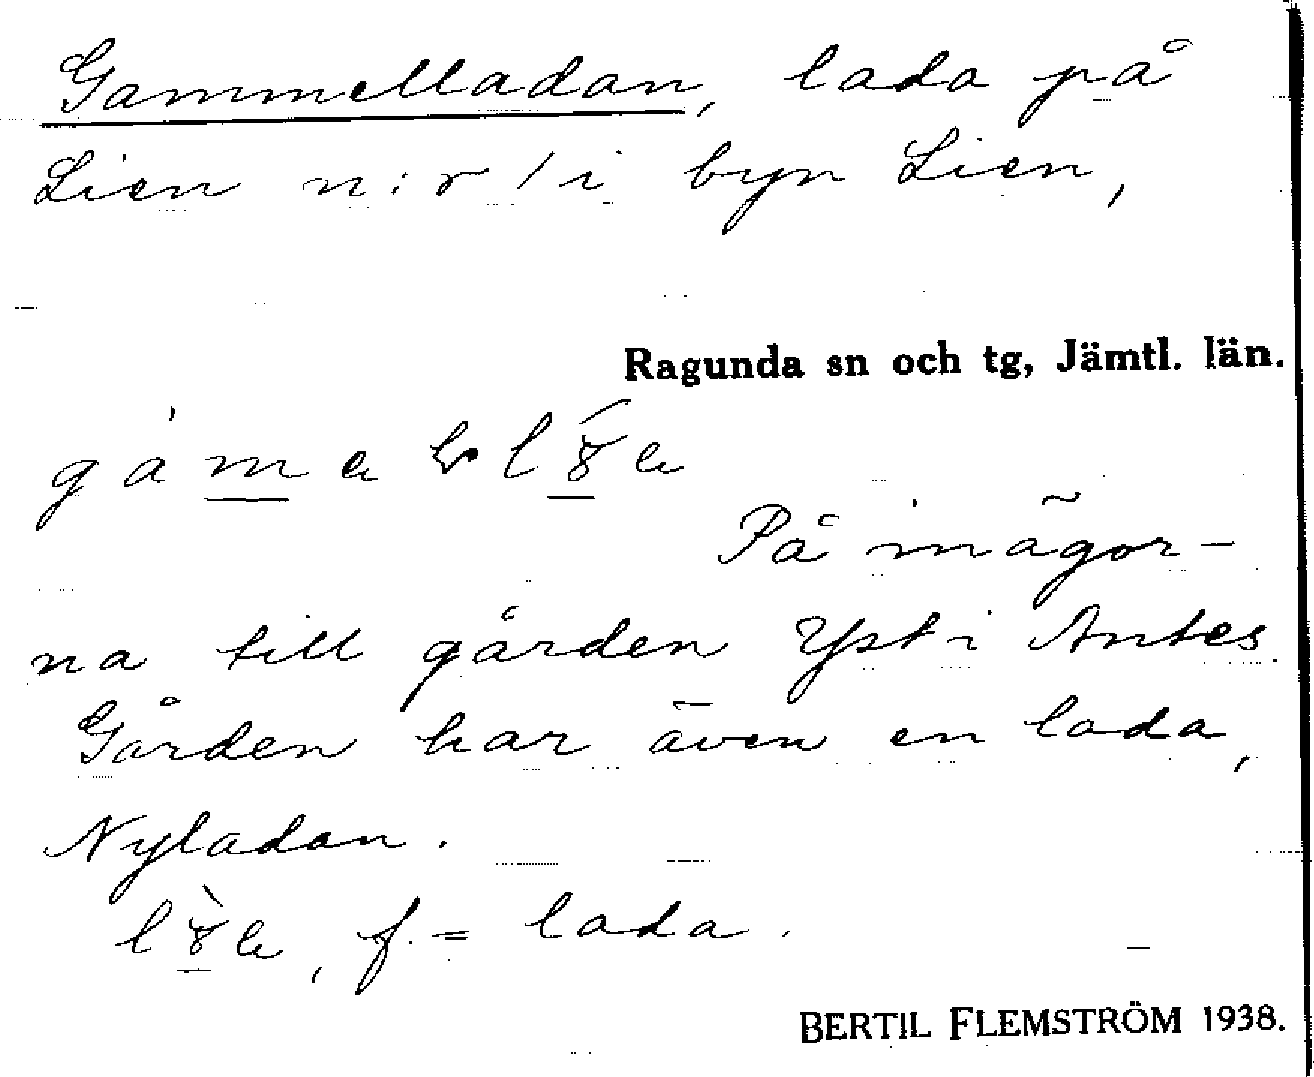 Gammelladan, lada på
Lien n:r 1 i byn Lien,
Ragunda sn och tg, Jämtl. län.
På inägor-
na till gården Yst i Antes.
Gården har även en lada,
Nyladan.
f. = lada.
BERTIL FLEMSTRÖM 1938.